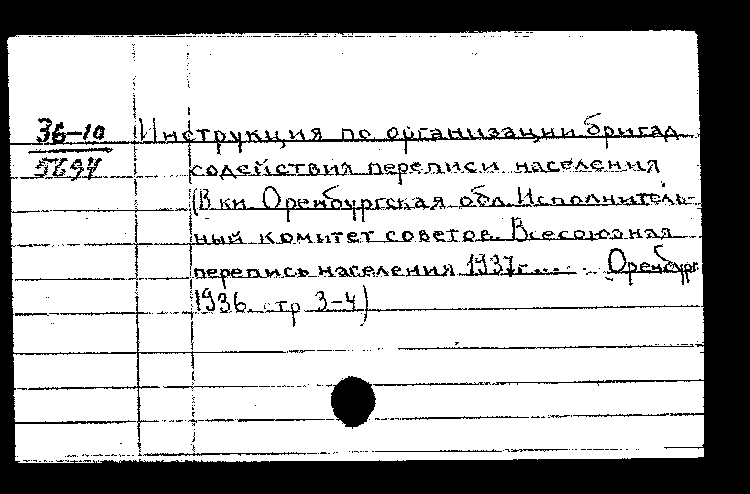 36-10 Инструкция по организации бригад
5694 содействия переписи населения
(В кн. Оренбургская обл. Исполнитель-
ный комитет советов. Всесоюзная
перепись населения 1937г.... Оренбург
1936. стр 3-4)